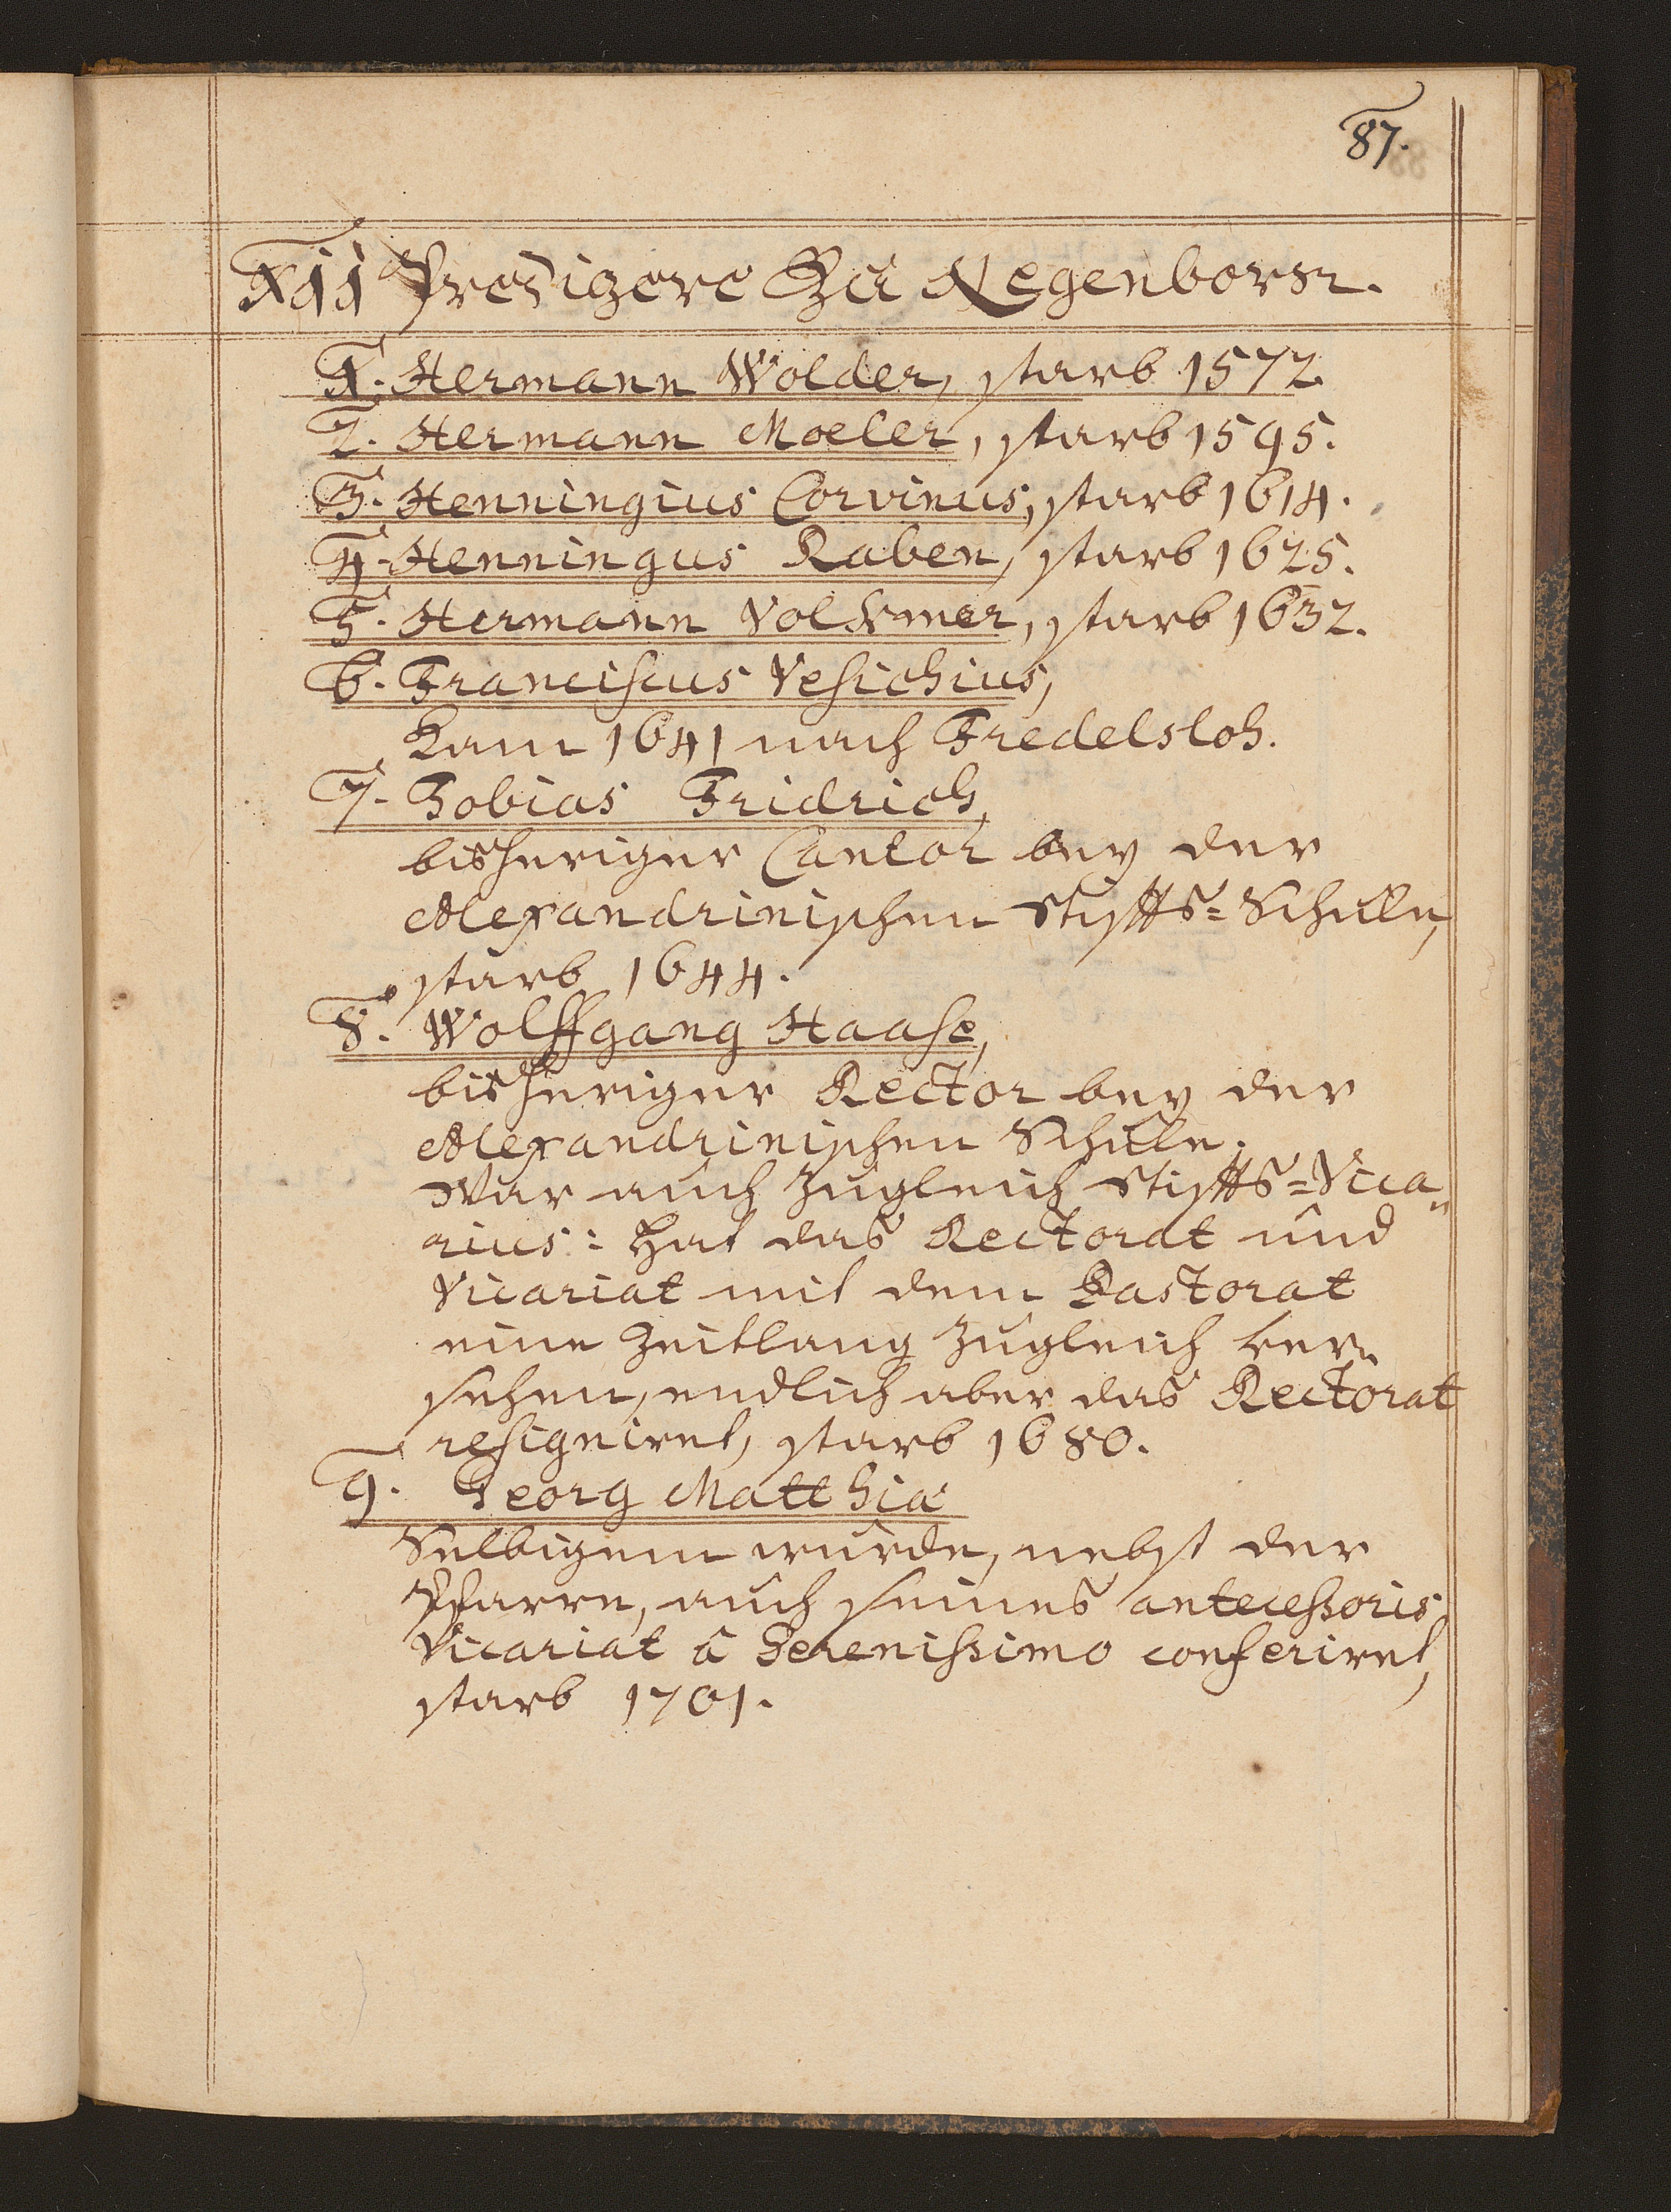 87.
XII Predigere Zu Negenborn.
1. Hermann Wolder, starb 1572.
2. Hermann Moeler, starb 1595.
3. Henningius Corvinus, starb 1614.
4. Henningus Raben, starb 1625.
5. Hermann Volkmer, starb 1632.
6. Franciscus Vesichius,
Kam 1641 nach Fredelsloh.
7. Tobias Fridrich,
bisheriger Cantor bey der
Alexandrinischen Stiffts-Schule,
starb 1644.
8. Wolffgang Haase,
bisheriger Rector bey der
Alexandrinischen Schule.
War auch zugleich Stiffts-Vica-
rius: Hat das Rectorat und
Vicariat mit dem Pastorat
eine Zeitlang zugleich ver-
sehen, endlich aber das Rectorat
resigniret, starb 1680.
9. Georg Matthiä
Selbigem wurde, nebst der
Pfarre, auch seines antecessoris
Vicariat â Serenissimo conferiret,
starb 1701.